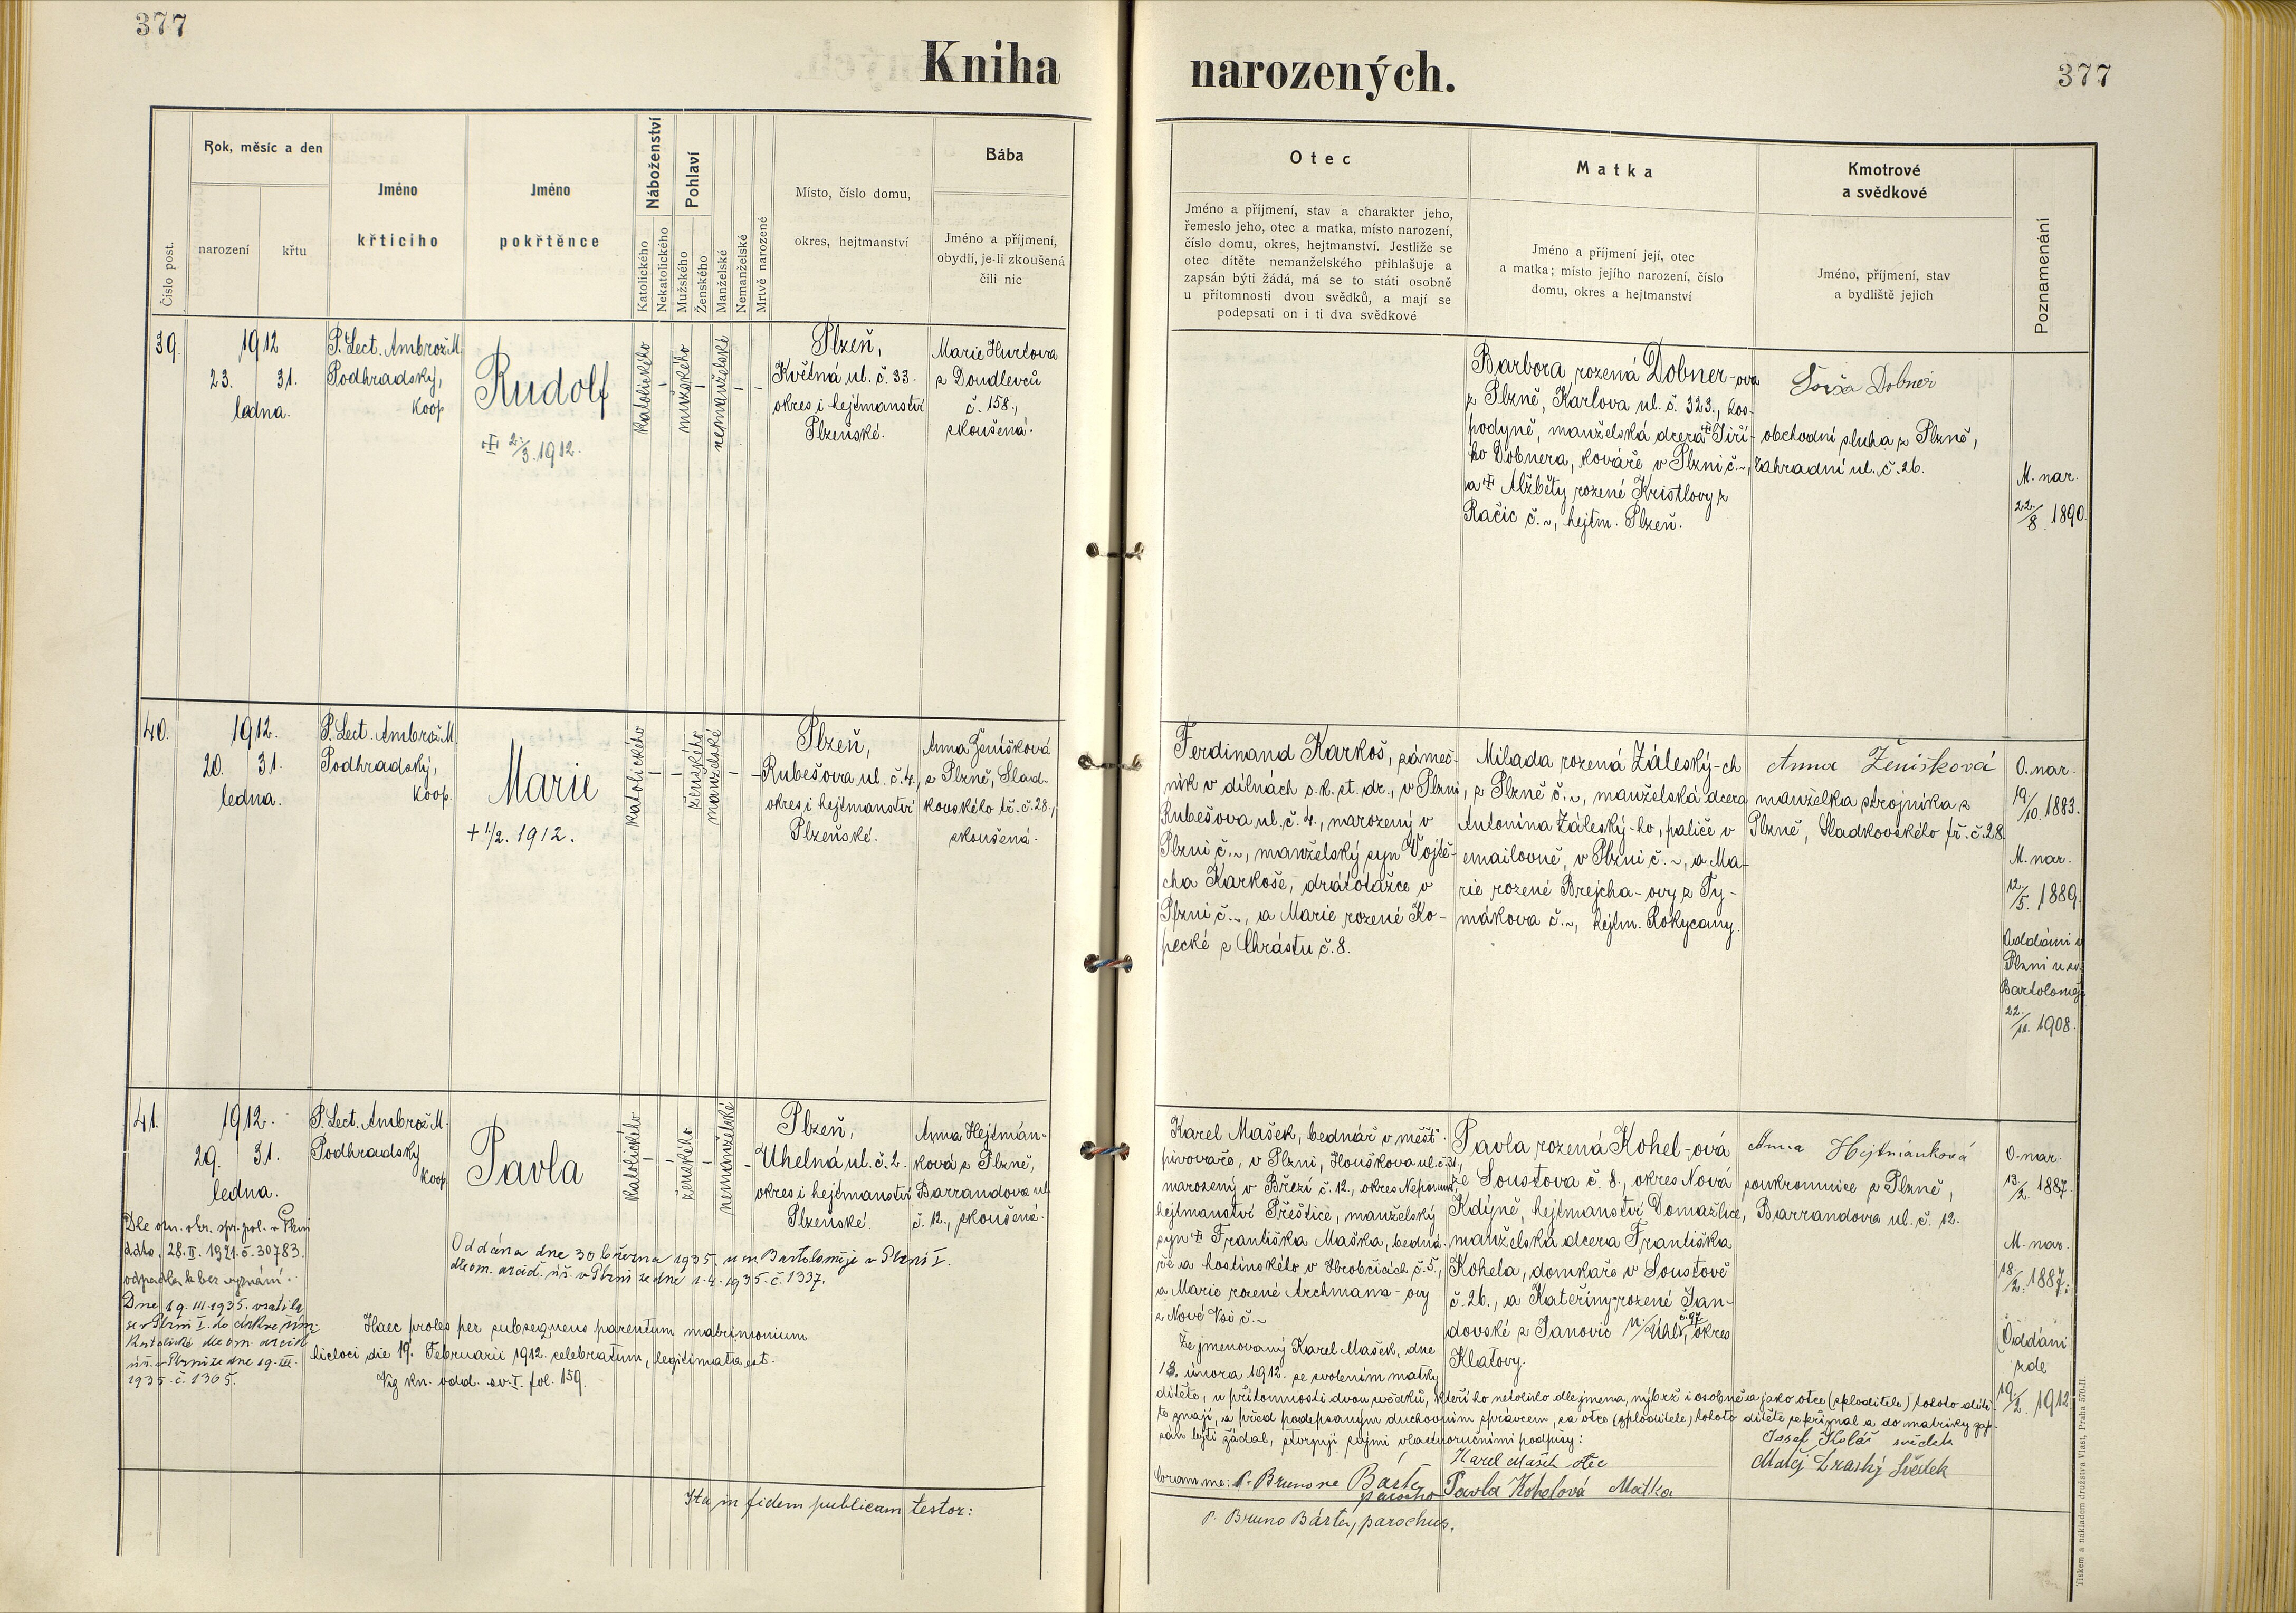 377
Kniha
narozených.
377
Číslo post.
Rok, měsíc a den
narození
křtu
Jméno
křticiho
Jméno
pokřtěnce
Náboženství
Katolického
Nekatolického
Pohlaví
Mužského
Ženského
Manželské
Nemanželské
Mrtvě narozené
Místo, číslo domu,
okres, hejtmanství
Bába
Jméno a příjmení,
obydlí, je-li zkoušená
čili nic
Otec
Jméno a příjmení, stav a charakter jeho,
řemeslo jeho, otec a matka, místo narození,
číslo domu, okres, hejtmanství. Jestliže se
otec dítěte nemanželského přihlašuje a
zapsán býti žádá, má se to státi osobně
u přítomnosti dvou svědků, a mají se
podepsati on i ti dva svědkové
Matka
Jméno a příjmení její, otec
a matka; místo jejího narození, číslo
domu, okres a hejtmanství
Kmotrové
a svědkové
Jméno, příjmení, stav
a bydliště jejich
Poznamenání
39.
1912
23. 31.
ledna.
P. Lect. Ambrož M.
Podhradský,
koop
Rudolf
2./3. 1912.
katolického
mužského
nemanželské
Plzeň,
Květná ul. č. 33.
okres i hejtmanství
Plzeňské.
Marie Hurtova
z Doudlevců
č. 158.,
zkoušená.
Barbora rozená Dobner-ova
z Plzně, Karlova ul. č. 323., hos-
podyně, manželská dcera Jiří-
ho Dobnera, kováře v Plzni č. ~,
a Alžběty rozené Kristlovy z
Račic č. ~, hejtm. Plzeň.
Dobner
obchodní sluha z Plzně,
Zahradní ul. č. 26.
M. nar.
22./8. 1890.
40.
1912.
20. 31.
ledna.
P. Lect. Ambrož M.
Podhradský,
koop.
Marie
+ 1/2. 1912.
katolického
ženského
manželské
Plzeň,
Rubešova ul. č. 4.,
okres i hejtmanství
Plzeňské.
Anna Ženíšková
z Plzně, Slad-
kovského tř. č. 28.,
zkoušená.
Ferdinand Karkoš, zámeč-
ník v dílnách s. k. st. dr., v Plzni,
Rubešova ul. č. 4., narozený v
Plzni č. ~, manželský syn Vojtě-
cha Karkoše, drátotažce v
Plzni č. ~, a Marie rozené Ko-
pecké z Chrástu č. 8.
Milada rozená Záleský-ch
z Plzně č. ~, manželská dcera
Antonína Záleský-ho, paliče v
emailovně, v Plzni č. ~, a Ma-
rie rozené Brejcha-ovy z Ty-
mákova č. ~, hejtm. Rokycany.
Anna Ženíšková
manželka strojníka z
Plzně, Sladkovského tř. č. 28.
O. nar.
19./10. 1883.
M. nar.
12./5. 1889.
Oddáni v
Plzni u sv.
Bartoloměje
22./11. 1908.
41.
1912.
29. 31.
ledna.
P. Lect. Ambrož M.
Podhradský
koop.
Pavla
katolického
ženského
nemanželské
Plzeň,
Uhelná ul. č. 2.
okres i hejtmanství
Plzeňské.
Anna Hejtmán-
ková z Plzně,
Barrandova ul.
č. 12., zkoušená.
Dle ozn. okr. spr. pol. v Plzni
ddto. 28. II. 1921. č. 30783.
odpadla k bez vyznání.
Dne 19. III. 1935. vrátila
se v Plzni I. do církve řím.
katolické dle ozn. arcid.
úř. v Plzni ze dne 19. III.
1935. č. 1365.
Oddána dne 30 března 1935. u sv. Bartoloměje v Plzni I.
dle ozn. arcid. úř. v Plzni ze dne 1. 4. 1935. č. 1337.
Haec proles per subsequens parentum matrimonium
hicloci die 19. Februarii 1912. celebratum, legitimata est.
Viz kn. odd. sv. I. fol. 159.
Karel Mašek, bednář v měšť.
pivovaře, v Plzni, Houškova ul. č. 31,
narozený v Březí č. 12., okres Nepomuk,
hejtmanství Přeštice, manželský
syn Františka Maška, bedná-
ře a hostinského v Hrobčicích č. 5.,
a Marie rozené Archmann-ovy
z Nové Vsi č. ~
Že jmenovaný Karel Mašek, dne
18. února 1912. se svolením matky
dítěte, u přítomnosti dvou svědků, kteří ho netoliko dle jména, nýbrž i osobně a jako otce (zploditele) tohoto dítě-
te znají, a před podepsaným duchovním správcem, za otce (zploditele) tohoto dítěte se přiznal a do matriky zap-
sán býti žádal, stvrzují svými vlastnoručními podpisy:
Pavla rozená Kohel-ová
ze Loustova č. 8., okres Nová
Kdýně, hejtmanství Domažlice,
manželská dcera Františka
Kohela, domkáře v Loustově
č. 26., a Kateřiny rozené Jan-
dovské z Janovic n/Úhl. č. 97, okres
Klatovy.
Anna Hejtmánková
soukromnice z Plzně,
Barrandova ul. č. 12.
O. nar.
13./2. 1887.
M. nar.
18./2. 1887.
Oddáni
zde
19./2. 1912
Karel Mašek otec
Josef Kolář svědek
Coram me: P. Brunone Bárta, parocho
Pavla Kohelová Matka
Matěj Svědek
Ita in fidem publicam testor:
P. Bruno Bárta, parochus.
Tiskem a nákladem družstva Vlast, Praha 570-II.